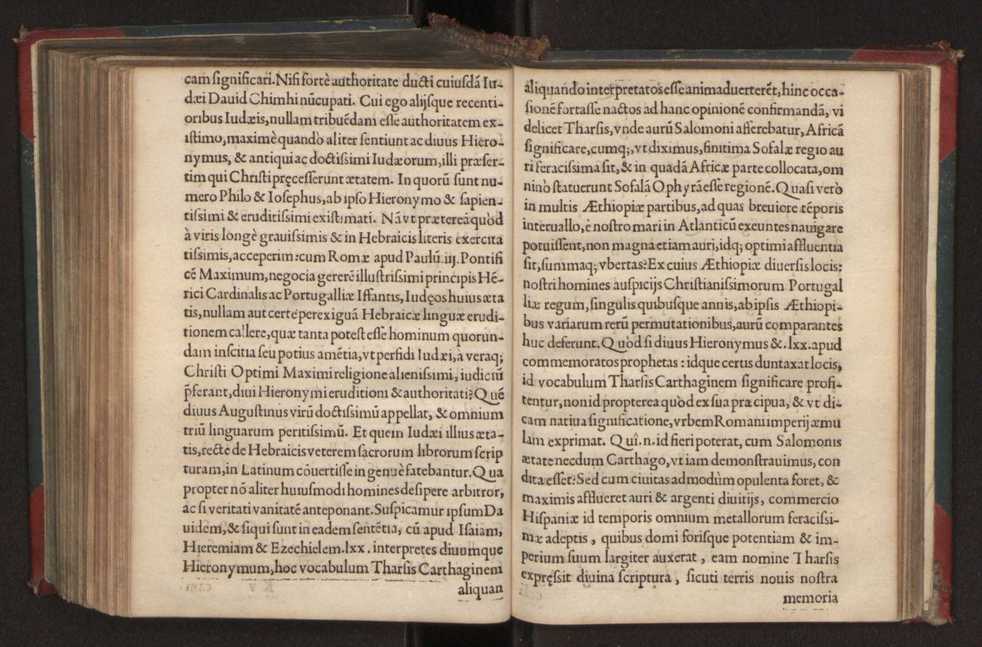 cam significari. Nisi fortè authoritate ducti cuiusdã Iu-
dæi Dauid Chimhi nũcupati. Cui ego alijsque recenti-
oribus Iudæis, nullam tribuẽdam esse authoritatem ex-
istimo, maximè quando aliter sentiunt ac diuus Hiero-
nymus, & antiqui ac doctissimi Iudæorum, illi præser-
tim qui Christi pręcesserunt ætatem. In quorũ sunt nu-
mero Philo & Iosephus, ab ipso Hieronymo & sapien-
tissimi & eruditissimi existimati. Nã vt prætereà quòd
à viris longè grauissimis & in Hebraicis literis exercita
tissimis, acceperim: cum Romæ apud Paulũ. iij. Pontifi
cẽ Maximum, negocia gererẽ illustrissimi principis Hẽ-
rici Cardinalis ac Portugalliæ Iffantis, Iudęos huius æta
tis, nullam aut certè perexiguã Hebraicæ linguæ erudi-
tionem callere, quæ tanta potest esse hominum quorun-
dam inscitia seu potius amẽtia, vt perfidi Iudæi, à veraq;
Christi Optimi Maximi religione alienissimi, iudiciũ
p̃ferant, diui Hieronymi eruditioni & authoritati? Quẽ
diuus Augustinus virũ doctissimũ appellat, & omnium
triũ linguarum peritissimũ. Et quem Iudæi illius æta-
tis, rectè de Hebraicis veterem sacrorum librorum scrip
turam, in Latinum cõuertisse ingenuè fatebantur. Qua
propter nõ aliter huiusmodi homines desipere arbitror,
ac si veritati vanitatẽ anteponant. Suspicamur ipsum Da
uidem, & siqui sunt in eadem sentẽtia, cũ apud Isaiam,
Hieremiam & Ezechielem. lxx. interpretes diuumque
Hieronymum, hoc vocabulum Tharsis Carthaginem
aliquan
aliquando interpretatos esse animaduerterẽt, hinc occa-
sionẽ fortasse nactos ad hanc opinionẽ confirmandã, vi
delicet Tharsis, vnde aurũ Salomoni afferebatur, Africã
significare, cumq;, vt diximus, finitima Sofalæ regio au
ri feracissima sit, & in quadã Africæ parte collocata, om
ninò statuerunt Sofalã Ophyrã esse regionẽ. Quasi verò
in multis Æthiopiæ partibus, ad quas breuiore tẽporis
interuallo, è nostro mari in Atlanticũ exeuntes nauigare
potuissent, non magna etiam auri, idq; optimi affluentia
sit, summaq; vbertas? Ex cuius Æthiopiæ diuersis locis:
nostri homines auspicijs Christianissimorum Portugal
liæ regum, singulis quibusque annis, ab ipsis Æthiopi-
bus variarum rerũ permutationibus, aurũ comparantes
huc deferunt. Quòd si diuus Hieronymus &. lxx. apud
commemoratos prophetas: idque certus duntaxat locis,
id vocabulum Tharsis Carthaginem significare profi-
tentur, non id propterea quòd ex sua præcipua, & vt di-
cam natiua significatione, vrbem Romani imperij æmu
lam exprimat. Quî. n. id fieri poterat, cum Salomonis
ætate necdum Carthago, vt iam demonstrauimus, con
dita esset? Sed cum ciuitas admodùm opulenta foret, &
maximis afflueret auri & argenti diuitijs, commercio
Hispaniæ id temporis omnium metallorum feracissi-
mæ adeptis, quibus domi forisque potentiam & im-
perium suum largiter auxerat, eam nomine Tharsis
expręssit diuina scriptura, sicuti terris nouis nostra
memoria